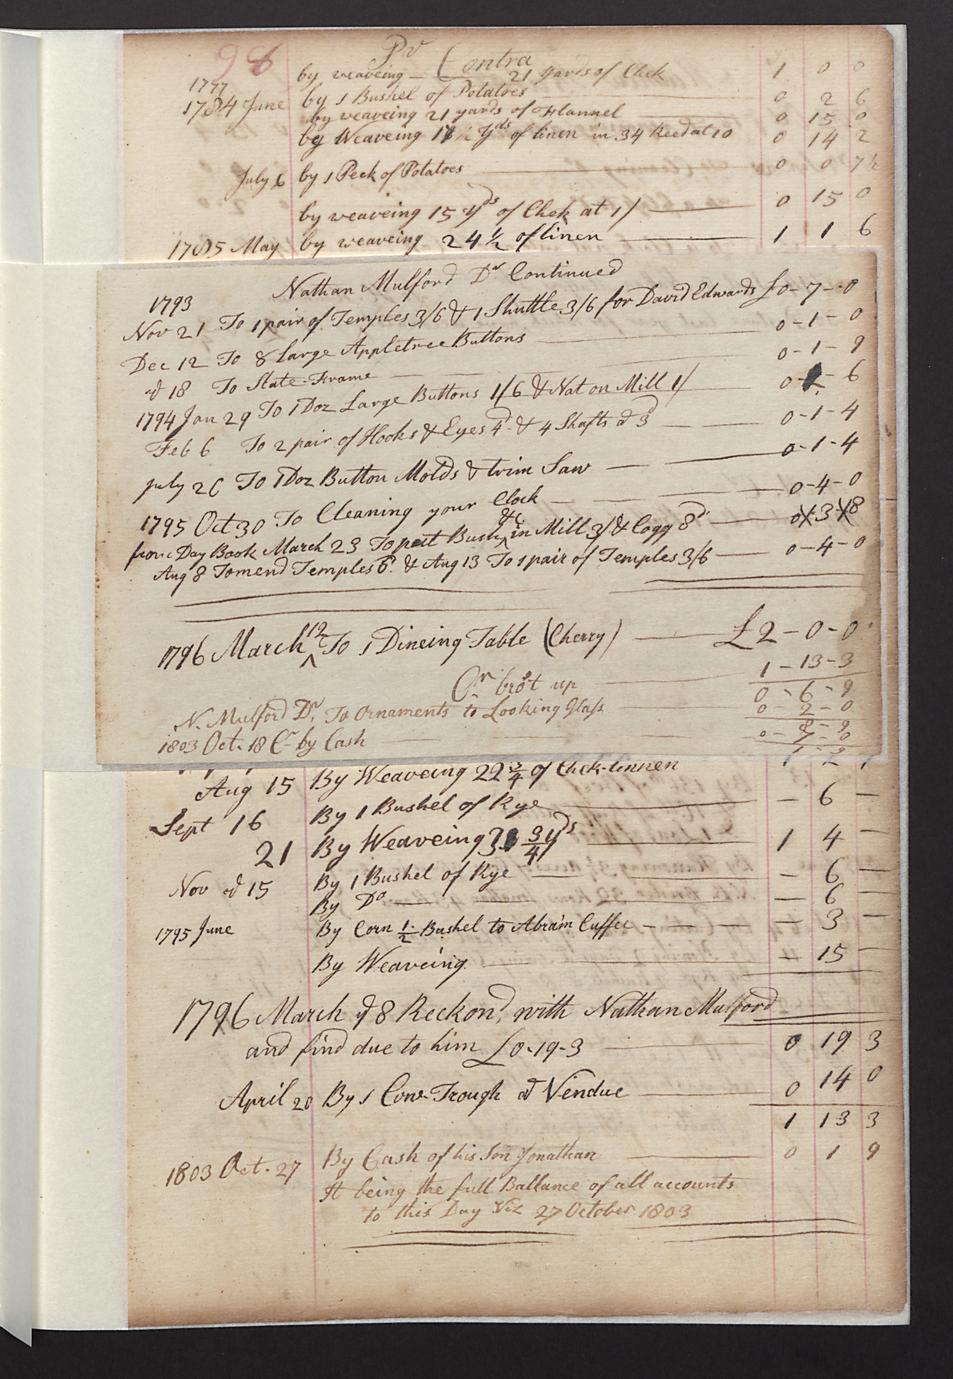 98
Pr Contra
1777 by weaveing — 21 yards of Chek 1 0 0
1784 June by 1 Bushel of Potatoes 0 2 6
by weaveing 21 yards of Flannel 0 15 0
by Weaveing 17 ½ yds of linen in 34 Reed at 10 0 14 2
July 6 by 1 Peck of Potatoes 0 0 7½
by weaveing 15 yds of Chek at 1/ 0 15 0
1785 May by weaveing 24 ½ of linen 1 1 6
Nathan Mulford Dr Continued
1793
Nov 21 To 1 pair of Temples 3/6 & 1 Shuttle 3/6 for David Edwards £0-7-0
Dec 12 To 8 Large Appletree Buttons 0-1-0
d 18 To State Frame 0-1-9
1794 Jan 29 To 1 Doz Large Buttons 1/6 & Nat on Mill 1/ 0- -6
Feb 6 To 2 pair of Hooks & Eyes 4d & 4 Shafts a 3d 0-1-4
July 26 To 1 Doz Button Molds & trim Saw 0-1-4
1795 Oct 30 To Cleaning your Clock 0-4-0
from Day Book March 23 To put Bush &c in Mill 3/ & Cogg 8d 0-3-8
Aug 8 To mend Temples 6d & Aug 13 To 1 pair of Temples 3/6 0-4-0
1796 March 12 To 1 Dineing Table (Cherry) £2-0-0
Cr brot up 1-13-3
0-6-9
N. Mulford Dr. To Ornaments to Looking Glass 0-2-0
8-9
1803 Oct. 18 Cr by Cash 0-7-0
1-9
Aug 15 By Weaveing 22 ¾ of Chek linnen 1 2
Sept 16 By 1 Bushel of Rye — 6 —
21 By Weaveing ¾ yds 1 4 —
Nov d 15 By 1 Bushel of Rye — 6 —
By Do — 6 —
1795 June By Corn ½ Bushel to Abram Cuffee — 3 —
By Weaveing — 15 —
1796 March d 8 Reckond. with Nathan Mulford
and find due to him £0-19-3 0 19 3
April 20 By 1 Cow Trough at Vendue 0 14 0
1 13 3
1803 Oct. 27 By Cash of his Son Jonathan 0 1 9
It being the full Ballance of all accounts
to this Day Viz 27 October 1803